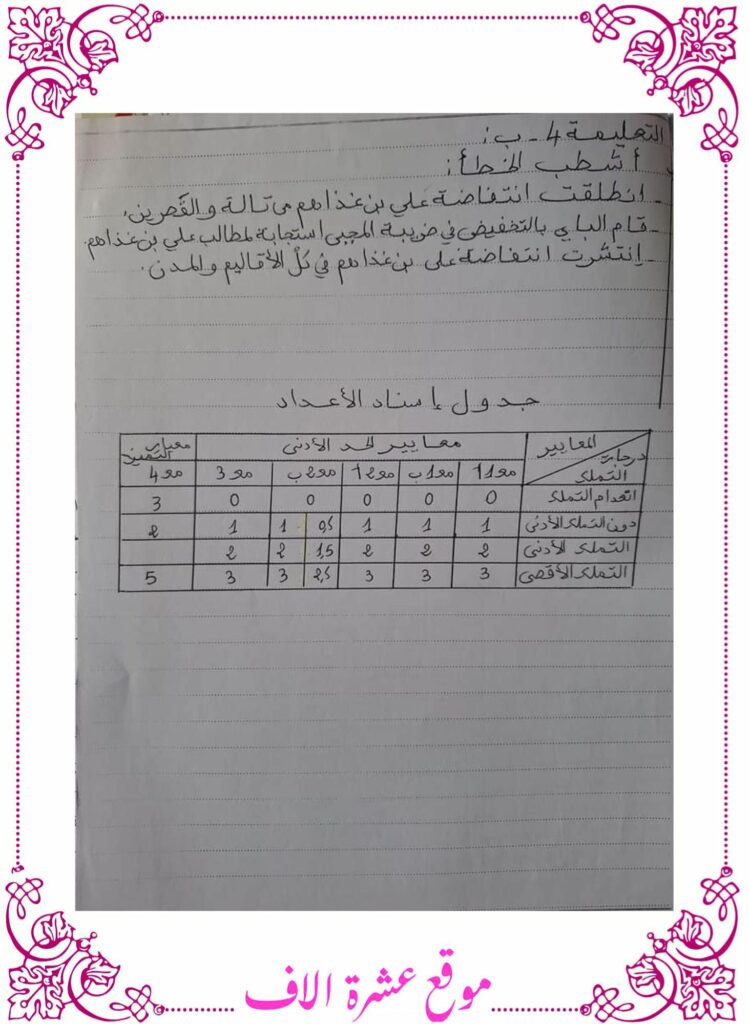 التعليمة 4 - ب:
أشطب الخطأ:
- انطلقت انتفاضة علي بن غذاهم من تالة والقصرين.
- قام الباي بالتخفيض في ضريبة المجبى استجابة لمطالب علي بن غذاهم.
- إنتشرت انتفاضة علي بن غذاهم في كلّ الأقاليم والمدن.
جدول إسناد الأعداد
المعايير درجات التملك | معايير الحد الأدنى | معيار التميز
مع 1أ | مع 1ب | مع 2أ | مع 2ب | مع 3 | مع 4
انعدام التملك | 0 | 0 | 0 | 0 | 0 | 3
دون التملك الأدنى | 1 | 1 | 1 | 0,5 | 1 | 1 | 2
التملك الأدنى | 2 | 2 | 2 | 1,5 | 2 | 2
التملك الأقصى | 3 | 3 | 3 | 2,5 | 3 | 3 | 5
موقع عشرة الاف